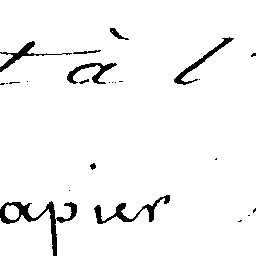 t à l
apier